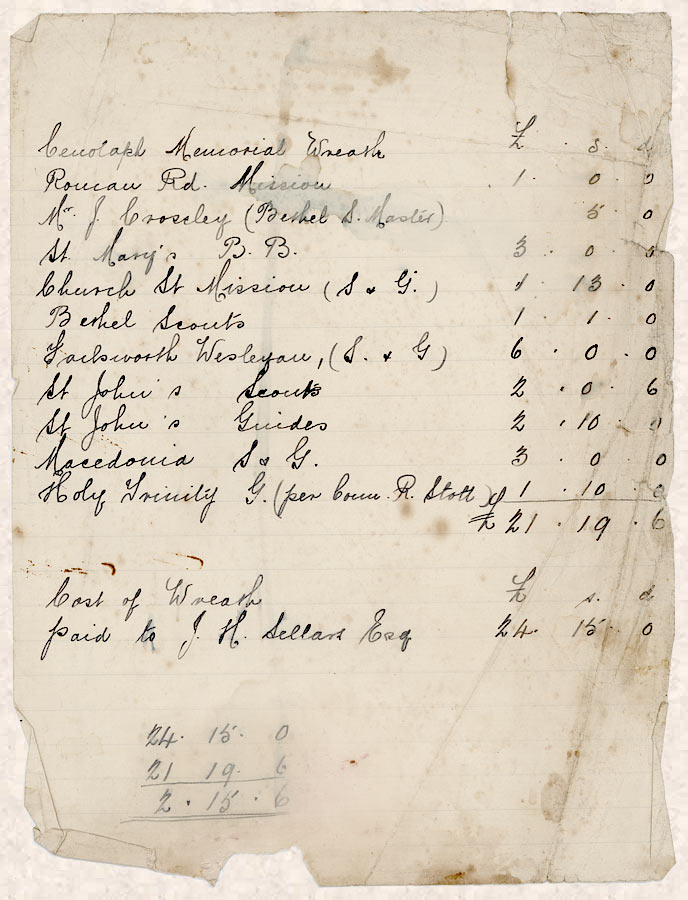 Cenotaph Memorial Wreath £ s. d
Roman Rd. Mission 1 · 0 · 0
Mr. J. Crossley (Bethel S. Master) 5 · 0
St. Mary's B. B. 3 · 0 · 0
Church St Mission (S & G.) 1 · 13 · 0
Bethel Scouts 1 · 1 · 0
Failsworth Wesleyan, (S. & G) 6 · 0 · 0
St John's Scouts 2 · 0 · 6
St John's Guides 2 · 10 · 0
Macedonia S & G. 3 · 0 · 0
Holy Trinity G. (per Comm. R. Stott) 1 · 10 · 0
£ 21 · 19 · 6
Cost of Wreath £ s. d
paid to J. H. Sellars Esq 24 · 15 · 0
24 · 15 · 0
21 19 · 6
2 · 15 · 6